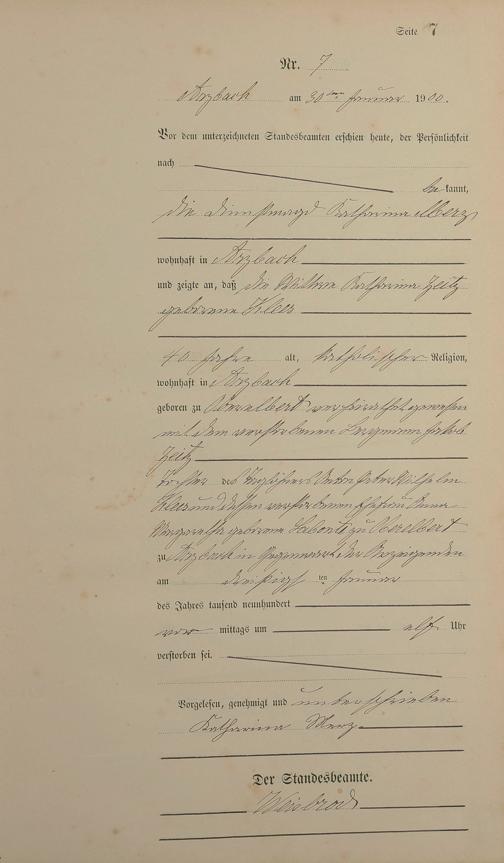 Seite 7
Nr. 7
Arzbach am 30ten Januar 1900.
Vor dem unterzeichneten Standesbeamten erschien heute, der Persönlichkeit
nach
bekannt,
die Dienstmagd Katharina
wohnhaft in Arzbach
und zeigte an, daß die Witwe Katharina Zeitz
geborene Klees
40 Jahre alt, katholischer Religion,
wohnhaft in Arzbach
geboren zu Oberelbert verheirathet gewesen
mit dem verstorbenen Bergmann Jakob
Zeitz
Tochter des Taglöhners Anton Peter Wilhelm
Klees und dessen verstorbenen Ehefrau Anna
Margaretha geborene zu Oberelbert
zu Arzbach in Gegenwart der Anzeigenden
am dreißigsten Januar
des Jahres tausend neunhundert
vor mittags um elf Uhr
verstorben sei.
Vorgelesen, genehmigt und unterschrieben
Katharina
Der Standesbeamte.
Weisbrod